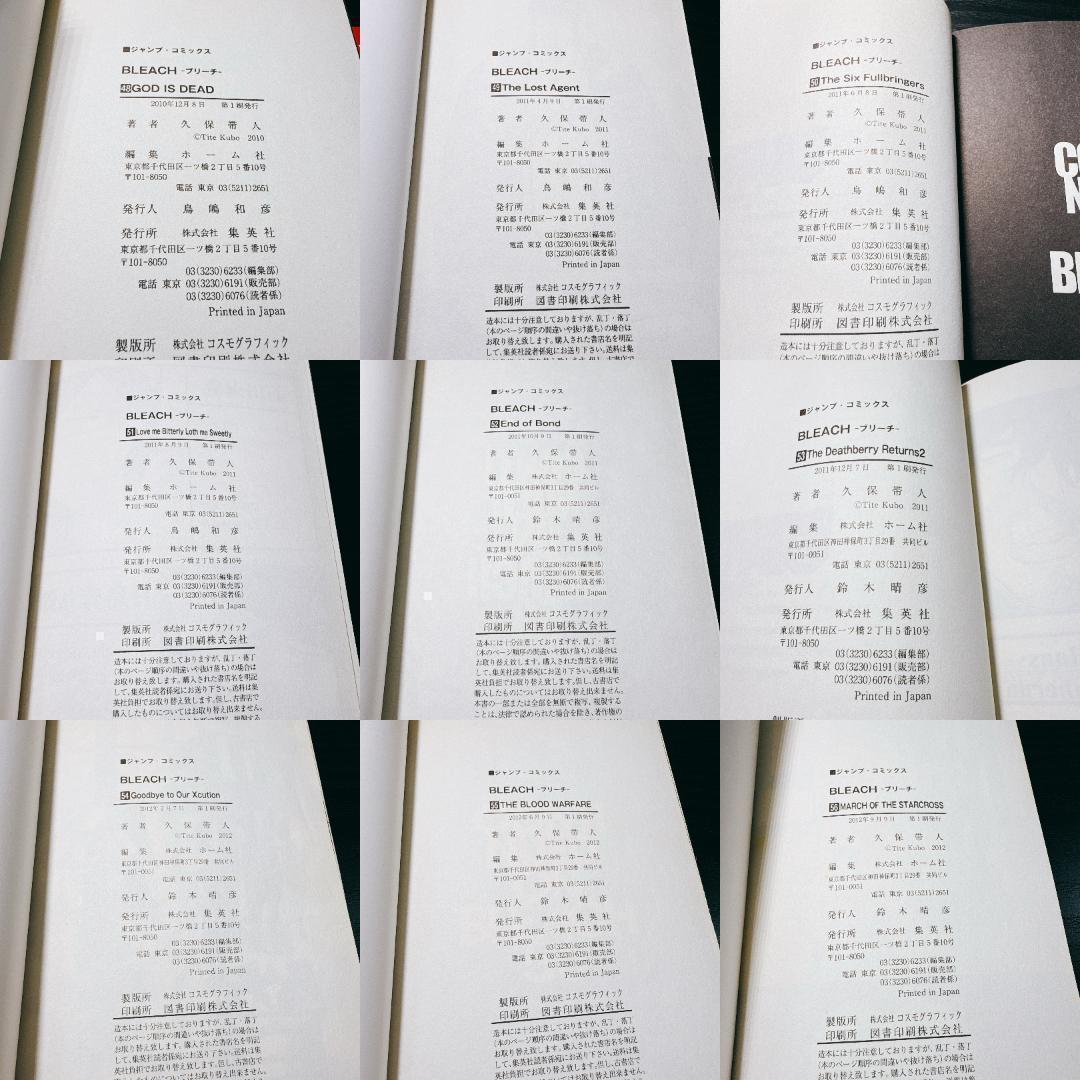 ■ジャンプ・コミックス
BLEACH -ブリーチ-
48 GOD IS DEAD
2010年12月8日 第1刷発行
著者 久保帯人
©Tite Kubo 2010
編集 ホーム社
東京都千代田区一ツ橋2丁目5番10号
〒101-8050
電話 東京 03(5211)2651
発行人 鳥嶋和彦
発行所 株式会社 集英社
東京都千代田区一ツ橋2丁目5番10号
〒101-8050
03(3230)6233(編集部)
電話 東京 03(3230)6191(販売部)
03(3230)6076(読者係)
Printed in Japan
製版所 株式会社コスモグラフィック
印刷所 図書印刷株式会社
■ジャンプ・コミックス
BLEACH -ブリーチ-
49 The Lost Agent
2011年4月9日 第1刷発行
著者 久保帯人
©Tite Kubo 2011
編集 ホーム社
東京都千代田区一ツ橋2丁目5番10号
〒101-8050
電話 東京 03(5211)2651
発行人 鳥嶋和彦
発行所 株式会社 集英社
東京都千代田区一ツ橋2丁目5番10号
〒101-8050
03(3230)6233(編集部)
電話 東京 03(3230)6191(販売部)
03(3230)6076(読者係)
Printed in Japan
製版所 株式会社コスモグラフィック
印刷所 図書印刷株式会社
造本には十分注意しておりますが、乱丁・落丁
(本のページ順序の間違いや抜け落ち)の場合は
お取り替え致します。購入された書店名を明記
して、集英社読者係宛にお送り下さい。送料は集
■ジャンプ・コミックス
BLEACH -ブリーチ-
50 The Six Fullbringers
2011年6月8日 第1刷発行
著者 久保帯人
©Tite Kubo 2011
編集 ホーム社
東京都千代田区一ツ橋2丁目5番10号
〒101-8050
電話 東京 03(5211)2651
発行人 鳥嶋和彦
発行所 株式会社 集英社
東京都千代田区一ツ橋2丁目5番10号
〒101-8050
03(3230)6233(編集部)
電話 東京 03(3230)6191(販売部)
03(3230)6076(読者係)
Printed in Japan
製版所 株式会社コスモグラフィック
印刷所 図書印刷株式会社
造本には十分注意しておりますが、乱丁・落丁
(本のページ順序の間違いや抜け落ち)の場合は
■ジャンプ・コミックス
BLEACH -ブリーチ-
51 Love me Bitterly Loth me Sweetly
2011年8月9日 第1刷発行
著者 久保帯人
©Tite Kubo 2011
編集 ホーム社
東京都千代田区一ツ橋2丁目5番10号
〒101-8050
電話 東京 03(5211)2651
発行人 鳥嶋和彦
発行所 株式会社 集英社
東京都千代田区一ツ橋2丁目5番10号
〒101-8050
03(3230)6233(編集部)
電話 東京 03(3230)6191(販売部)
03(3230)6076(読者係)
Printed in Japan
製版所 株式会社コスモグラフィック
印刷所 図書印刷株式会社
造本には十分注意しておりますが、乱丁・落丁
(本のページ順序の間違いや抜け落ち)の場合は
お取り替え致します。購入された書店名を明記
して、集英社読者係宛にお送り下さい。送料は集
英社負担でお取り替え致します。但し、古書店で
購入したものについてはお取り替え出来ません。
■ジャンプ・コミックス
BLEACH -ブリーチ-
52 End of Bond
2011年10月9日 第1刷発行
著者 久保帯人
©Tite Kubo 2011
編集 株式会社 ホーム社
東京都千代田区神田神保町3丁目29番 共同ビル
〒101-0051
電話 東京 03(5211)2651
発行人 鈴木晴彦
発行所 株式会社 集英社
東京都千代田区一ツ橋2丁目5番10号
〒101-8050
03(3230)6233(編集部)
電話 東京 03(3230)6191(販売部)
03(3230)6076(読者係)
Printed in Japan
製版所 株式会社コスモグラフィック
印刷所 図書印刷株式会社
造本には十分注意しておりますが、乱丁・落丁
(本のページ順序の間違いや抜け落ち)の場合は
お取り替え致します。購入された書店名を明記
して、集英社読者係宛にお送り下さい。送料は集
英社負担でお取り替え致します。但し、古書店で
購入したものについてはお取り替え出来ません。
本書の一部または全部を無断で複写、複製する
ことは、法律で認められた場合を除き、著作権の
■ジャンプ・コミックス
BLEACH -ブリーチ-
53 The Deathberry Returns2
2011年12月7日 第1刷発行
著者 久保帯人
©Tite Kubo 2011
編集 株式会社 ホーム社
東京都千代田区神田神保町3丁目29番 共同ビル
〒101-0051
電話 東京 03(5211)2651
発行人 鈴木晴彦
発行所 株式会社 集英社
東京都千代田区一ツ橋2丁目5番10号
〒101-8050
03(3230)6233(編集部)
電話 東京 03(3230)6191(販売部)
03(3230)6076(読者係)
Printed in Japan
■ジャンプ・コミックス
BLEACH -ブリーチ-
54 Goodbye to Our Xcution
2012年2月7日 第1刷発行
著者 久保帯人
©Tite Kubo 2012
編集 株式会社 ホーム社
東京都千代田区神田神保町3丁目29番 共同ビル
〒101-0051
電話 東京 03(5211)2651
発行人 鈴木晴彦
発行所 株式会社 集英社
東京都千代田区一ツ橋2丁目5番10号
〒101-8050
03(3230)6233(編集部)
電話 東京 03(3230)6191(販売部)
03(3230)6076(読者係)
Printed in Japan
製版所 株式会社コスモグラフィック
印刷所 図書印刷株式会社
造本には十分注意しておりますが、乱丁・落丁
(本のページ順序の間違いや抜け落ち)の場合は
お取り替え致します。購入された書店名を明記
して、集英社読者係宛にお送り下さい。送料は集
英社負担でお取り替え致します。但し、古書店で
購入したものについてはお取り替え出来ません。
■ジャンプ・コミックス
BLEACH -ブリーチ-
55 THE BLOOD WARFARE
2012年6月9日 第1刷発行
著者 久保帯人
©Tite Kubo 2012
編集 株式会社 ホーム社
東京都千代田区神田神保町3丁目29番 共同ビル
〒101-0051
電話 東京 03(5211)2651
発行人 鈴木晴彦
発行所 株式会社 集英社
東京都千代田区一ツ橋2丁目5番10号
〒101-8050
03(3230)6233(編集部)
電話 東京 03(3230)6191(販売部)
03(3230)6076(読者係)
Printed in Japan
製版所 株式会社コスモグラフィック
印刷所 図書印刷株式会社
造本には十分注意しておりますが、乱丁・落丁
(本のページ順序の間違いや抜け落ち)の場合は
お取り替え致します。購入された書店名を明記
して、集英社読者係宛にお送り下さい。送料は集
英社負担でお取り替え致します。但し、古書店で
■ジャンプ・コミックス
BLEACH -ブリーチ-
56 MARCH OF THE STARCROSS
2012年9月9日 第1刷発行
著者 久保帯人
©Tite Kubo 2012
編集 株式会社 ホーム社
東京都千代田区神田神保町3丁目29番 共同ビル
〒101-0051
電話 東京 03(5211)2651
発行人 鈴木晴彦
発行所 株式会社 集英社
東京都千代田区一ツ橋2丁目5番10号
〒101-8050
03(3230)6233(編集部)
電話 東京 03(3230)6191(販売部)
03(3230)6076(読者係)
Printed in Japan
製版所 株式会社コスモグラフィック
印刷所 図書印刷株式会社
造本には十分注意しておりますが、乱丁・落丁
(本のページ順序の間違いや抜け落ち)の場合は
お取り替え致します。購入された書店名を明記